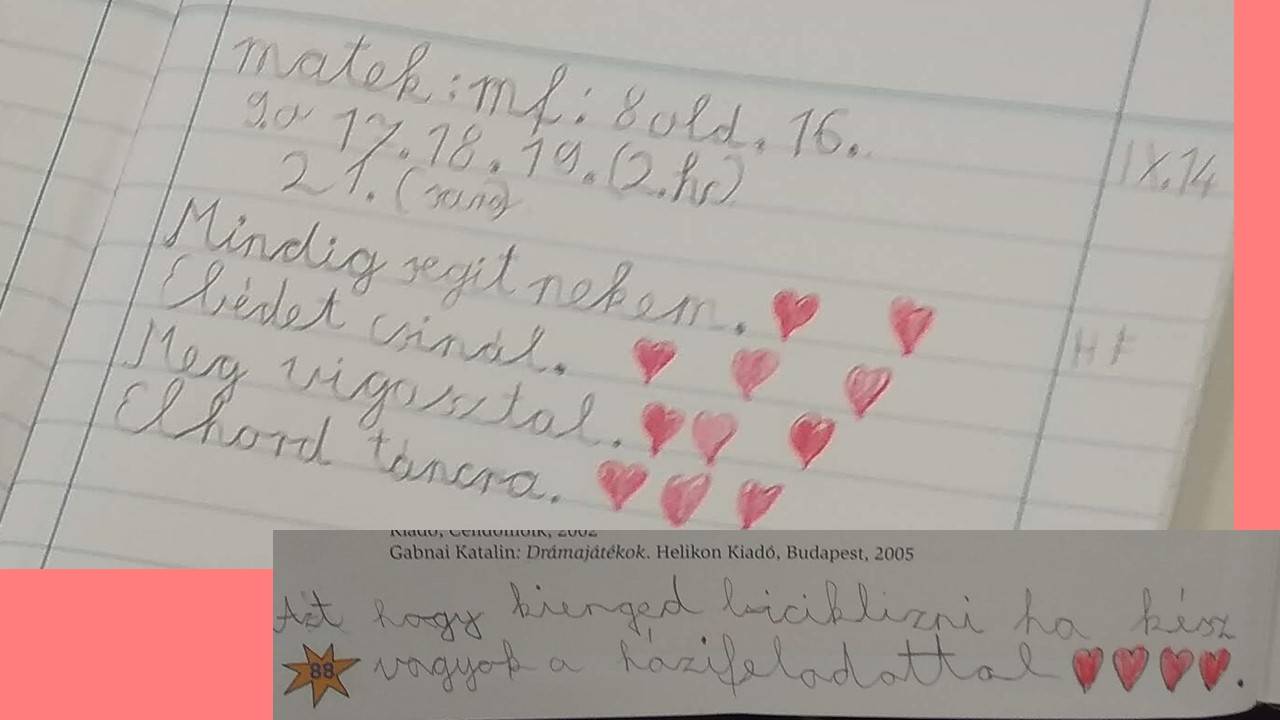 matek: mf: 8 old. 16.
17. 18. 19. (2. hr)
21.
IX. 14
Mindig segit nekem.
Ebédet csinál.
HF
Meg vigasztal.
Elhord táncra.
Kiadó, Celldömölk, 2002
Gabnai Katalin: Drámajátékok. Helikon Kiadó, Budapest, 2005
Azt hogy kienged biciklizni ha kész
88
vagyok a házifeladattal.